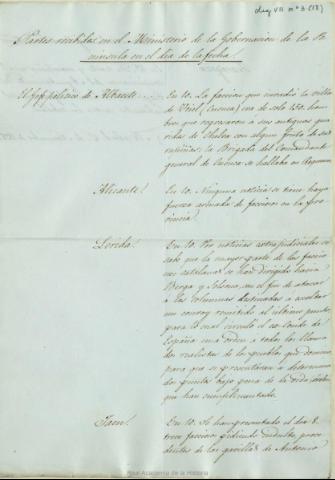 Leg VII nº 3 (18)
Partes recibidos en el Ministerio de la Gobernacion de la Pe
ninsula en el dia de la fecha.
El Gefe politico de Albacete... En 10. La faccion que invadió la villa
de Utiel (Cuenca) era de solo 150 hom
bres que regresaron á sus antiguas gua
ridas de Chelva con algun fruto de sus
rapiñas; la Brigada del Comandante
general de Cuenca se hallaba en Requena
Alicante. En 10. Ninguna noticia se tiene haya
fuerza armada de facciosos en la pro
vincia.
Lerida. En 10. Por noticias extrajudiciales se
sabe que la mayor parte de las faccio
nes catalanas se han dirigido hacia
Berga y Solsona, con el fin de atacar
á las columnas destinadas a escoltar
un convoy remitido al ultimo punto,
para lo cual circuló el ex-Conde de
España una orden a todos los llama
dos realistas de los pueblos que domina
para que se presentaran a determina
dos puntos bajo pena de la vida
que han cumplimentado.
Jaen. En 10. Se han presentado el dia 8.
trece facciosos pidiendo indulto, proce
dentes de las gavillas de Antonio
Real Academia de la Historia